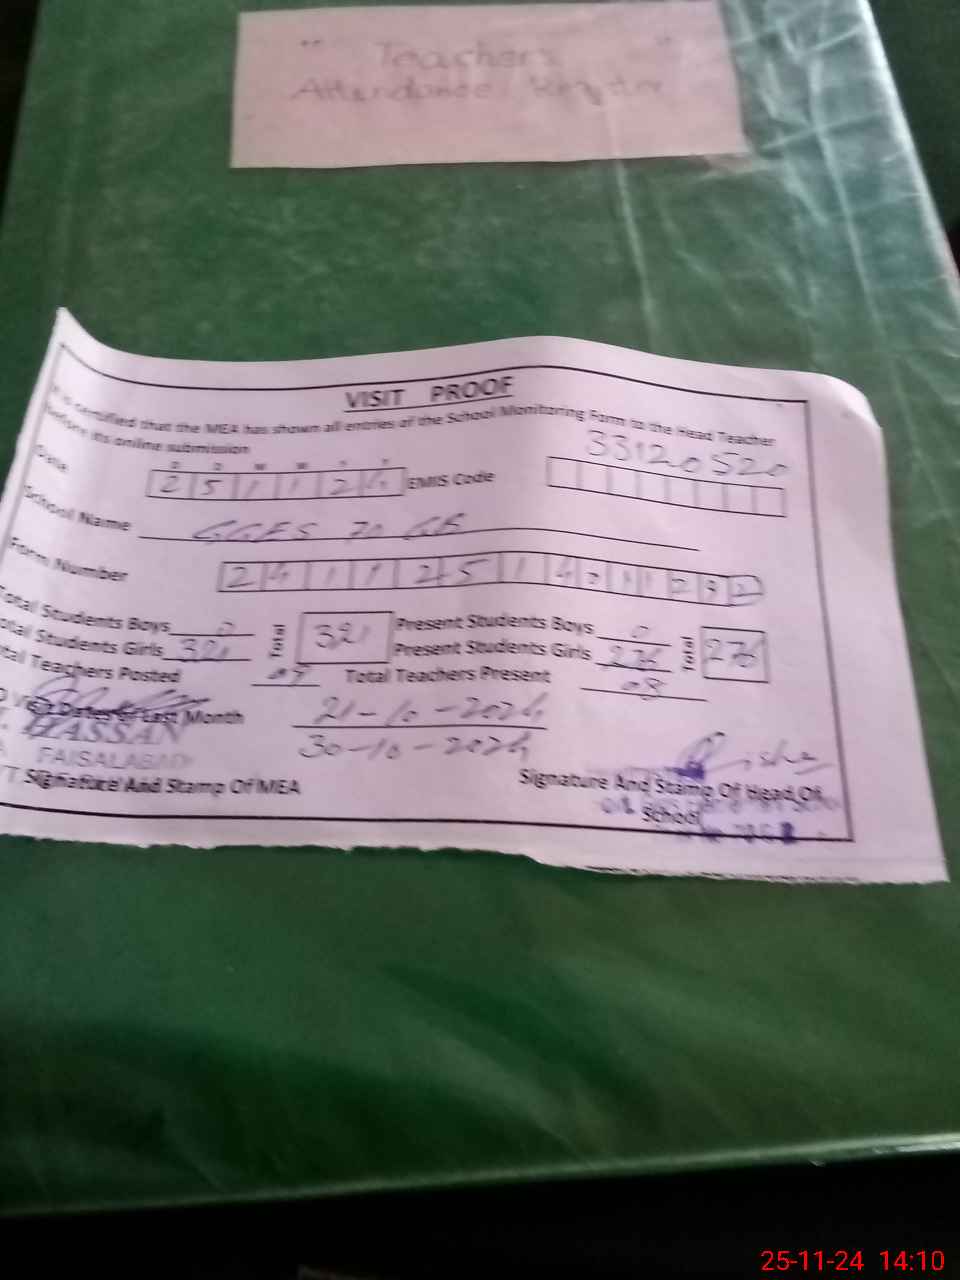 " Teachers "
Attendance Register
VISIT PROOF
It is certified that the MEA has shown all entries of the School Monitoring Form to the Head Teacher
before its online submission
D D M M Y Y
Date 251124 EMIS Code 33120520
School Name GGES 70 GB
Form Number
Total Students Boys 0 Total 321 Present Students Boys 0 Total 276
Total Students Girls 321 Present Students Girls 276
Total Teachers Posted Total Teachers Present 08
Visit Dates of Last Month 21-10-2024
30-10-2024
HASSAN
FAISALABAD
Signature And Stamp Of MEA
Signature And Stamp Of Head Of
School
25-11-24 14:10